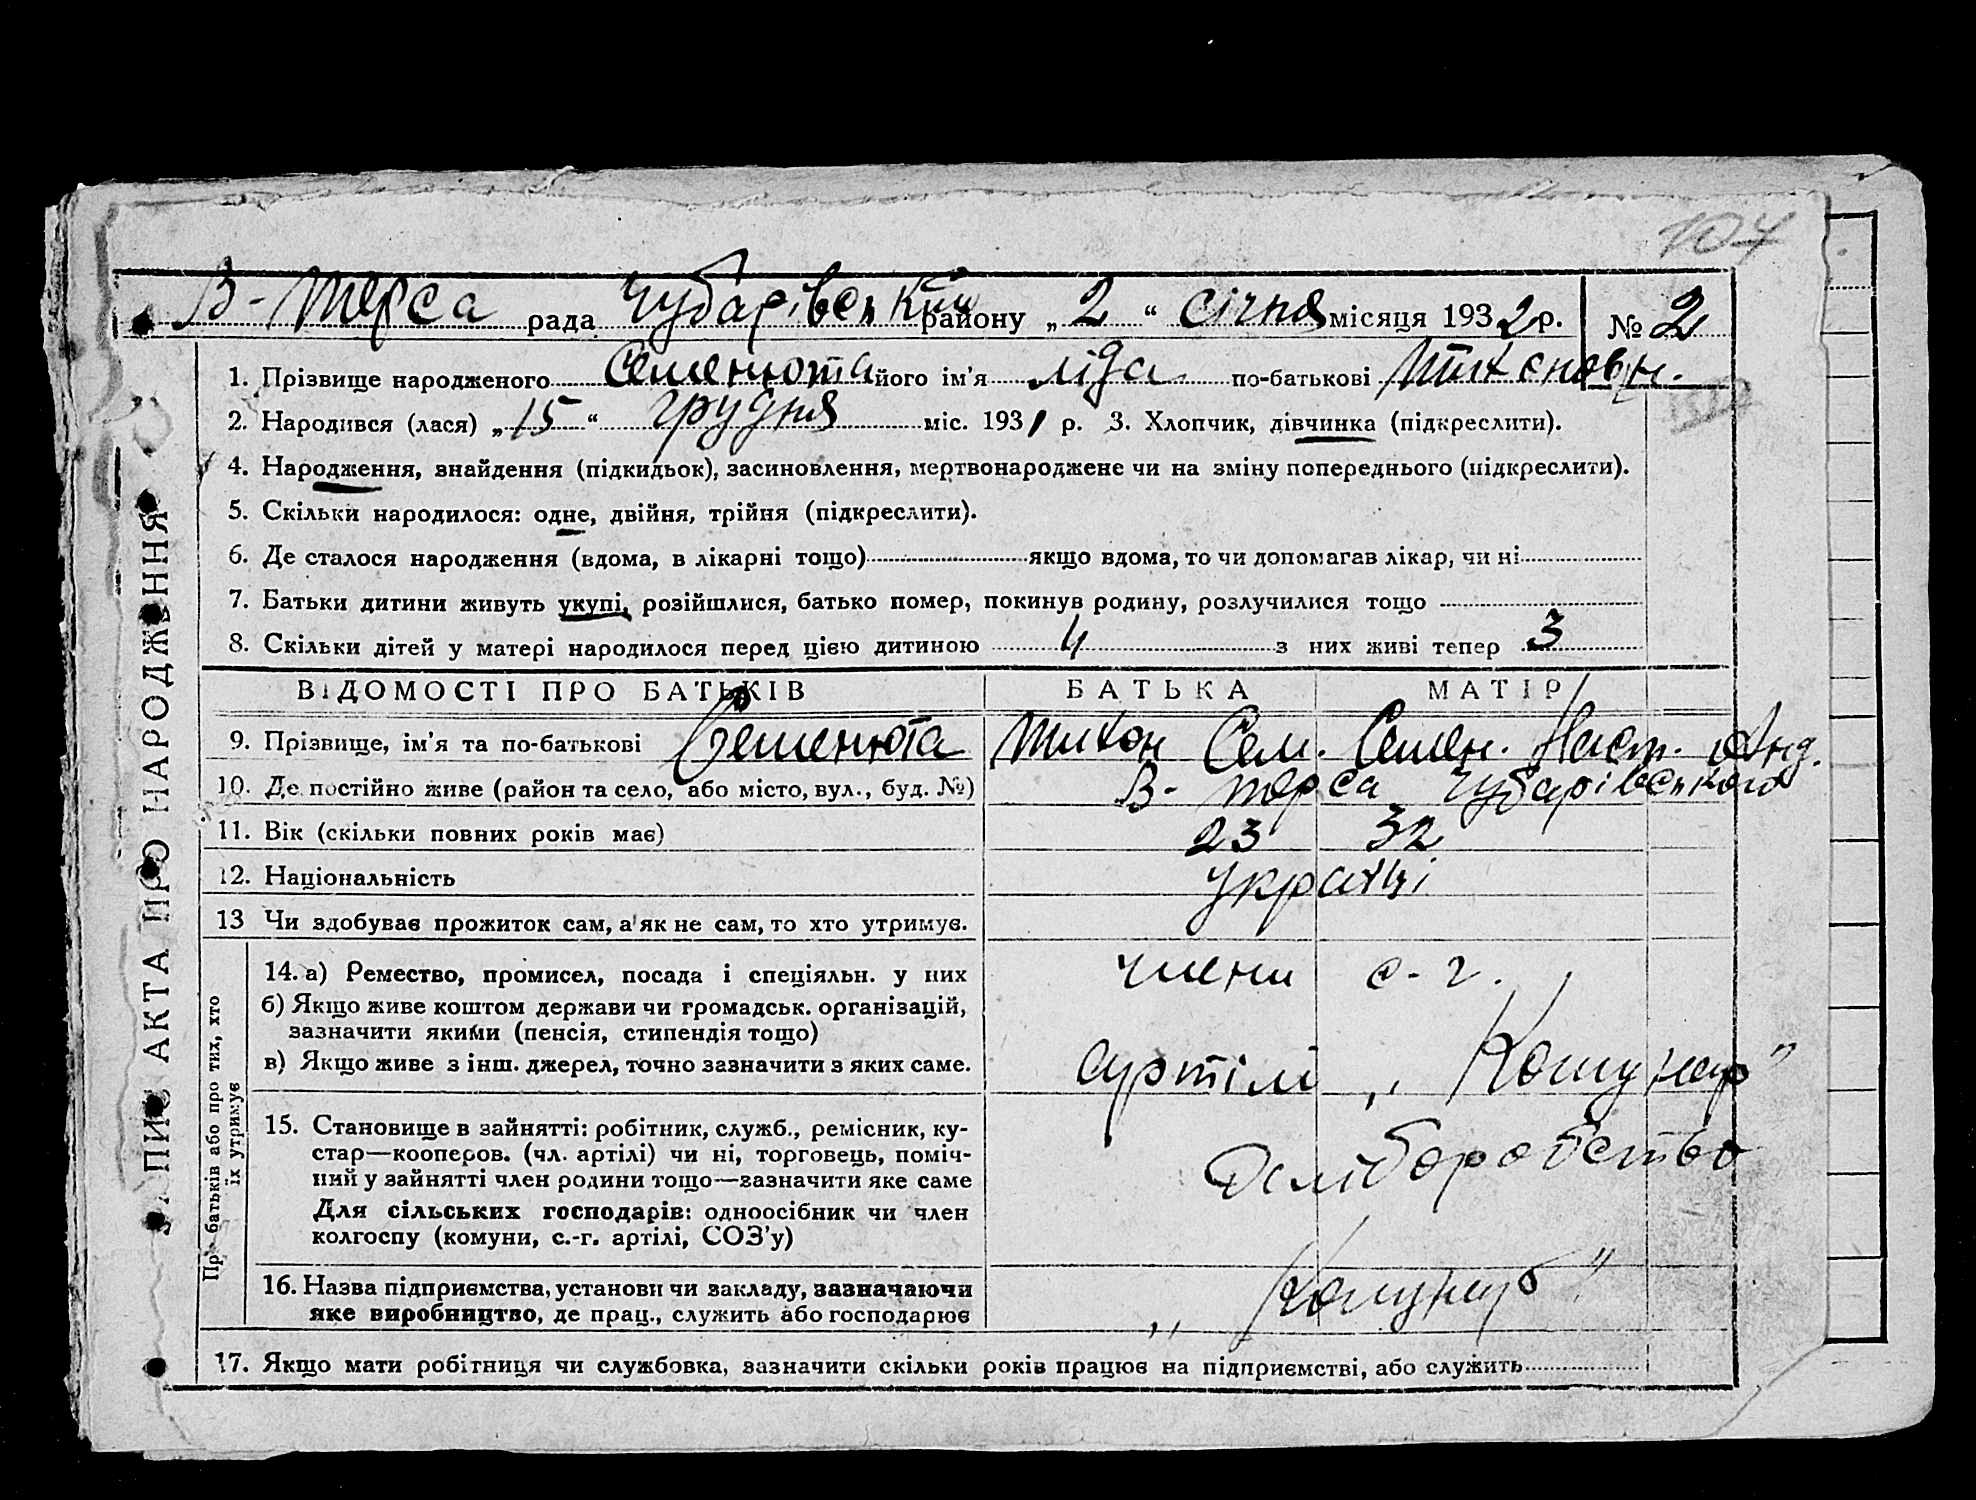 107
В-Терса рада Чубарівський району „2“ січня місяця 1932 р. № 2
1. Прізвище народженого Семенюта його ім'я Ліда по-батькові Тихеновн.
2. Народився (лася) „15“ грудня міс. 1931 р. 3. Хлопчик, дівчинка (підкреслити).
4. Народження, знайдення (підкидьок), засиновлення, мертвонароджене чи на зміну попереднього (підкреслити).
5. Скільки народилося: одне, двійня, трійня (підкреслити).
6. Де сталося народження (вдома, в лікарні тощо) якщо вдома, то чи допомагав лікар, чи ні
7. Батьки дитини живуть укупі, розійшлися, батько помер, покинув родину, розлучилися тощо
8. Скільки дітей у матері народилося перед цією дитиною 4 з них живі тепер 3
ЗАПИС АКТА ПРО НАРОДЖЕННЯ
ВІДОМОСТІ ПРО БАТЬКІВ БАТЬКА МАТІР
9. Прізвище, ім'я та по-батькові Семенюта Тихон Сем. Семен. Наст. Анд.
10. Де постійно живе (район та село, або місто, вул., буд. №) В-Терса Чубарівського
11. Вік (скільки повних років має) 23 32
12. Національність українці
13 Чи здобуває прожиток сам, а як не сам, то хто утримує.
Про батьків або про тих, хто
їх утримує
14. а) Ремество, промисел, посада і спеціяльн. у них члени с-г.
б) Якщо живе коштом держави чи громадськ. організацій,
зазначити якими (пенсія, стипендія тощо)
в) Якщо живе з інш. джерел, точно зазначити з яких саме. артілі „Комунар”
15. Становище в зайнятті: робітник, служб., ремісник, ку-
стар—кооперов. (чл. артілі) чи ні, торговець, поміч-
ний у зайнятті член родини тощо—зазначити яке саме
Для сільських господарів: одноосібник чи член
колгоспу (комуни, с.-г. артілі, СОЗ'у)
16. Назва підприємства, установи чи закладу, зазначаючи
яке виробництво, де прац., служить або господарює
17. Якщо мати робітниця чи службовка, зазначити скільки років працює на підприємстві, або служить